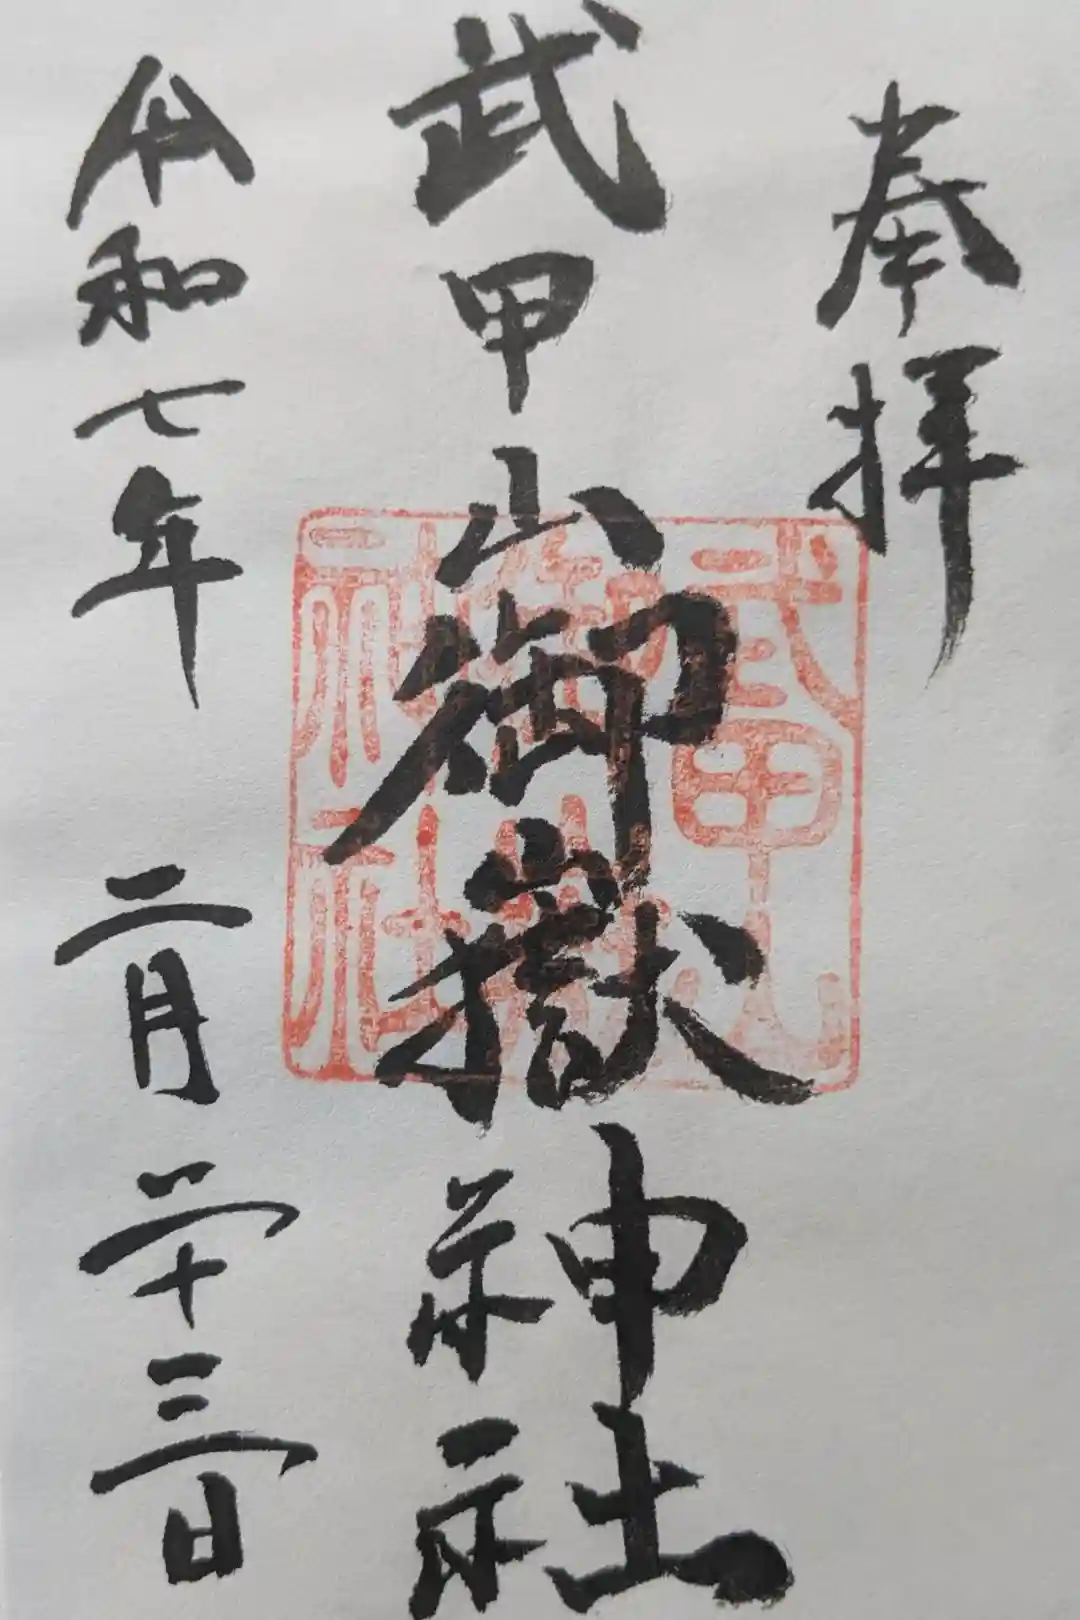 奉拝
武甲山御嶽神社
武甲山
御嶽
神社
令和七年 二月二十三日